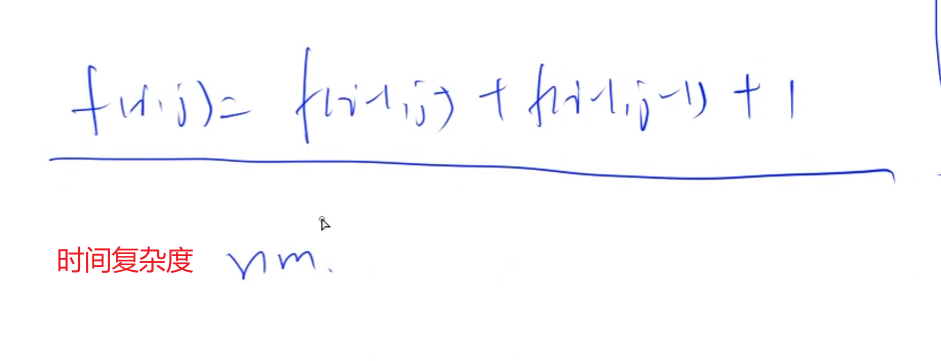 f(i,j)= f(i-1,j) + f(i-1,j-1) + 1
时间复杂度 nm.